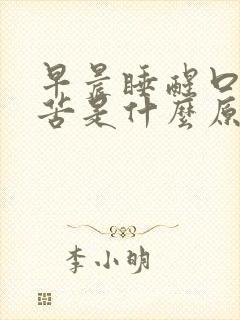 早晨睡醒口
苦是什麼原
李小明